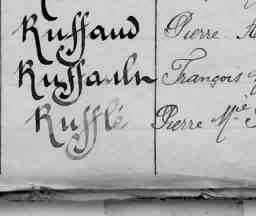 Ruffaud Pierre
Ruffault François
Rufflé Pierre Mie